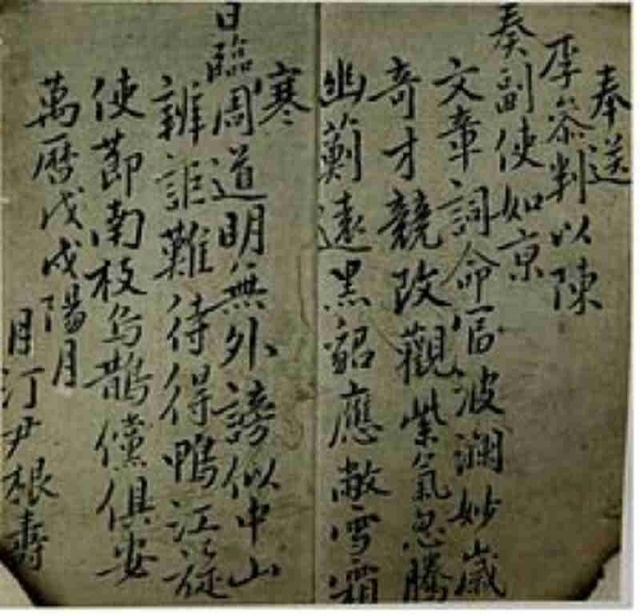 奉送
李叅判以陳
奏副使如京
文章詞命官波瀾妙歲
奇才競改觀紫氣忽騰
幽薊遠黑貂應敝雪霜
寒
日臨周道明無外謗似中山
辨詎難待得鴨江旋
使節南枝烏鵲儻俱安
萬曆戊戌陽月
月汀尹根壽